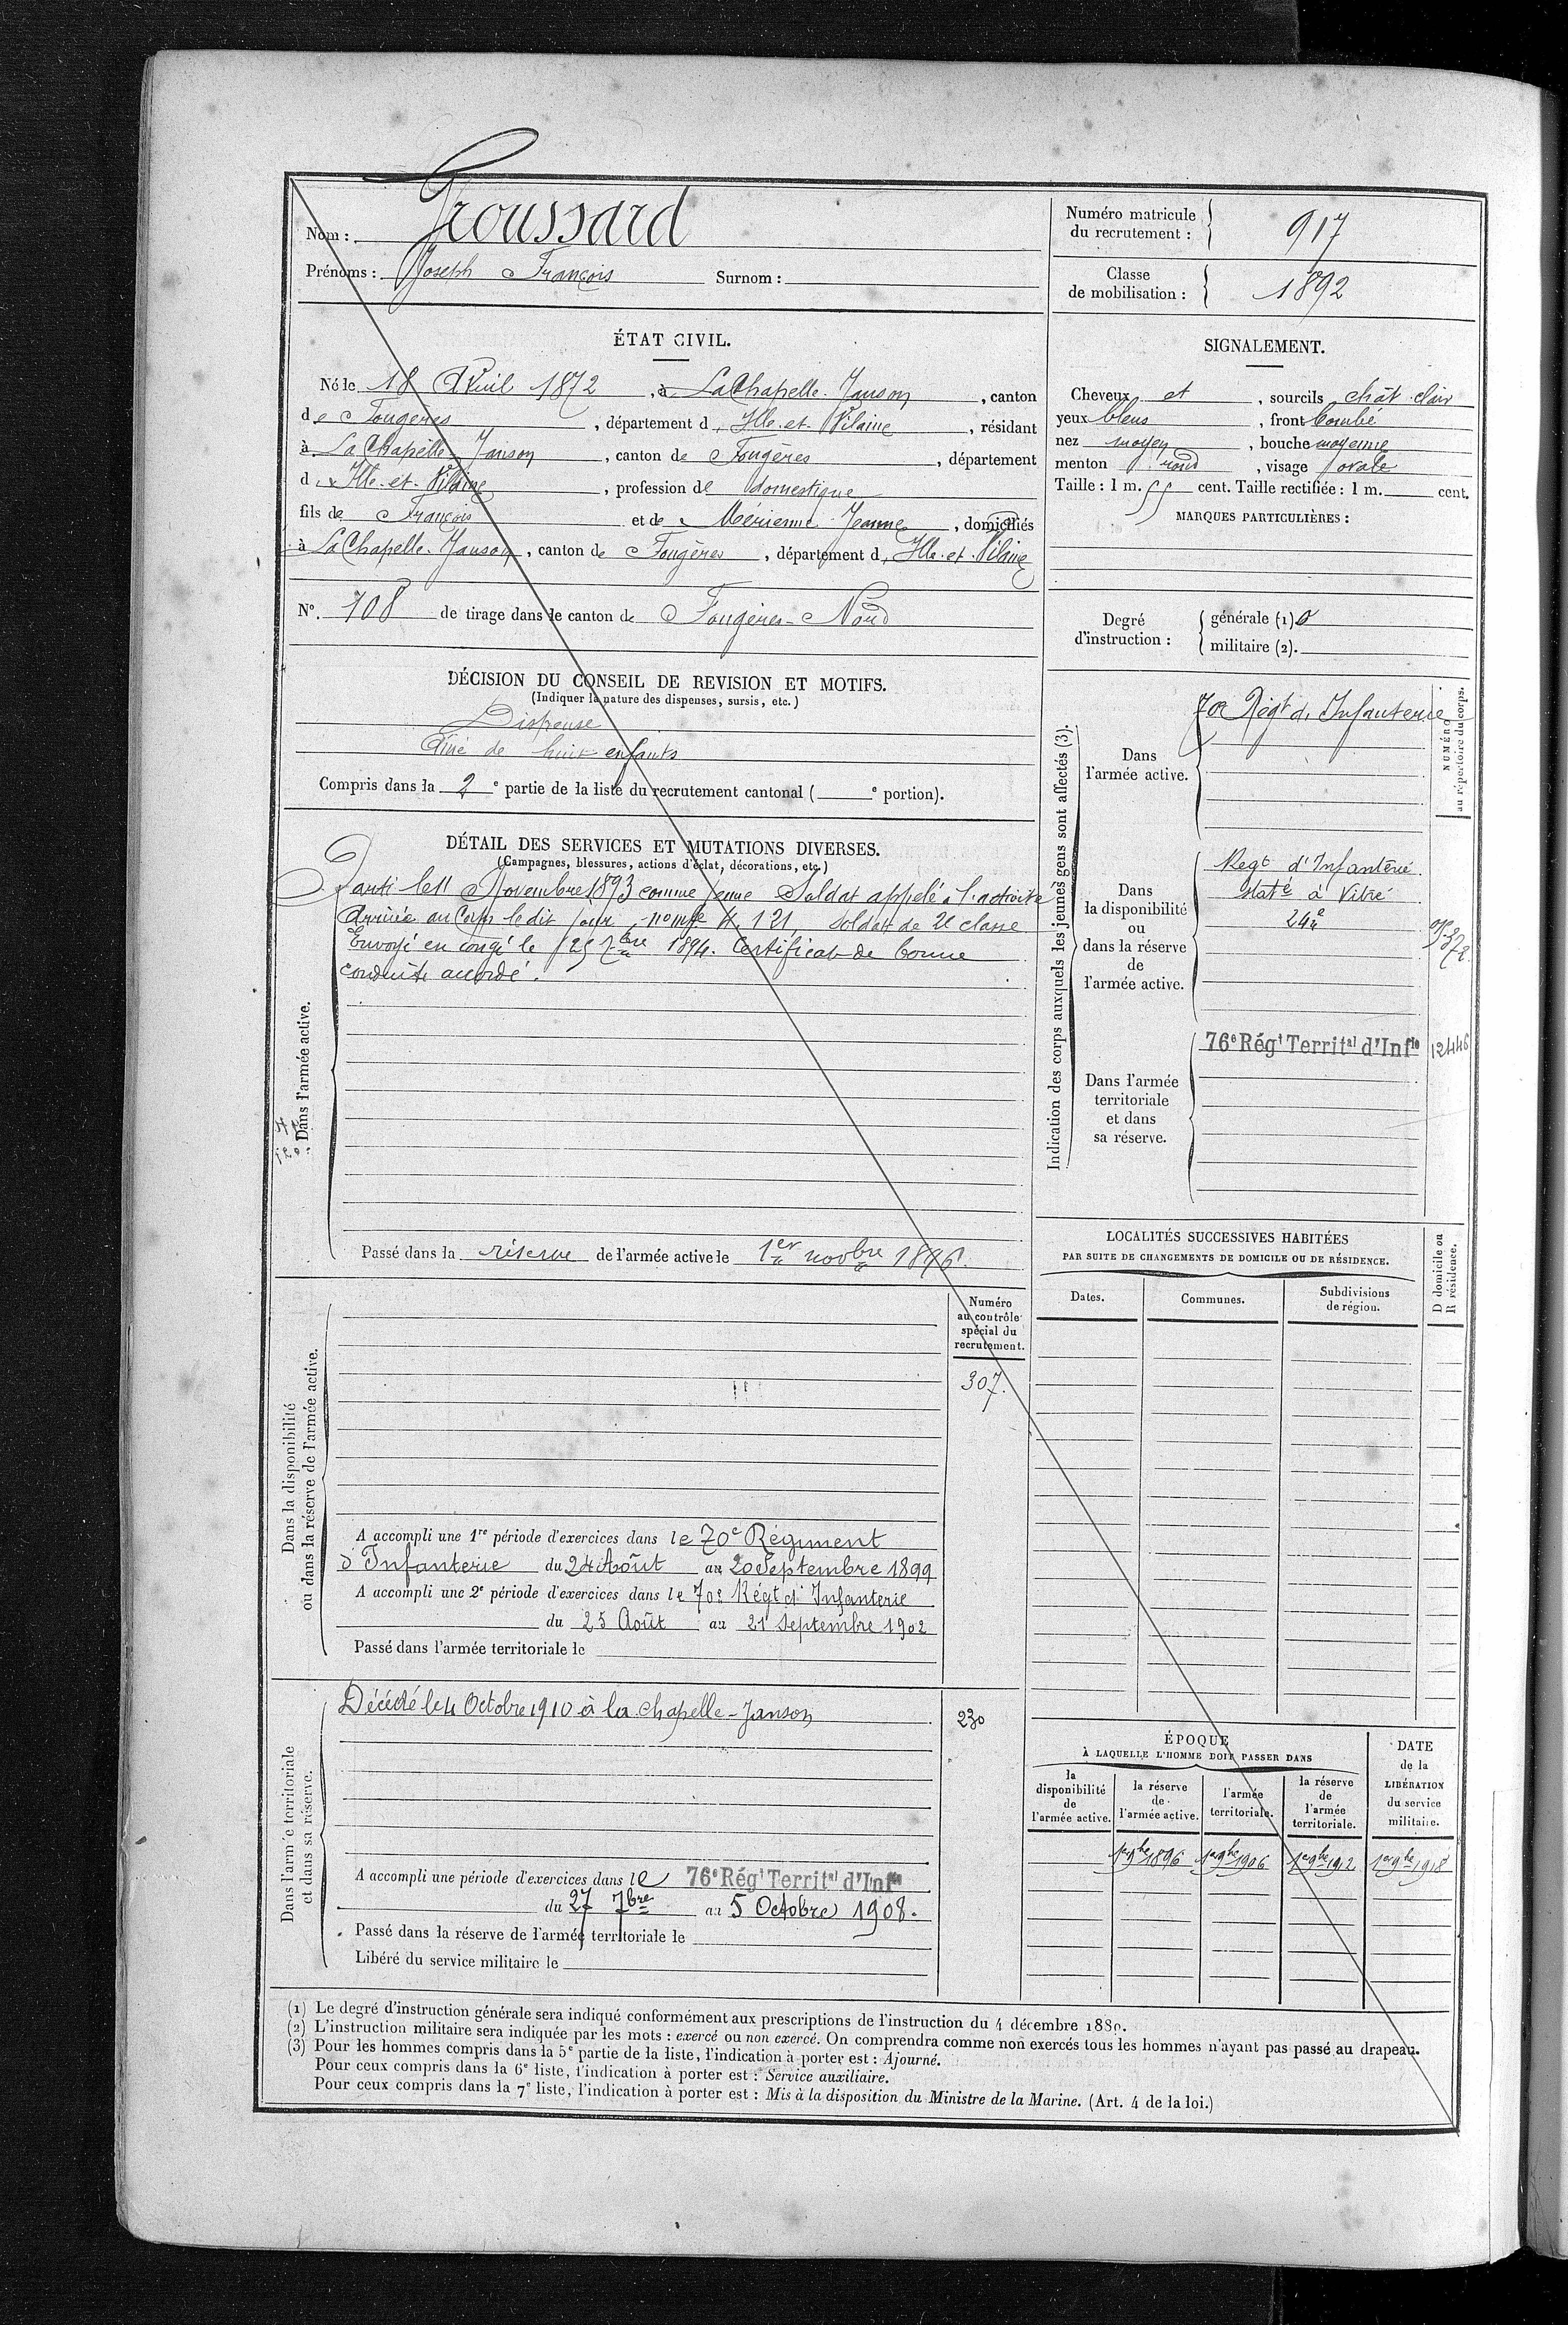 Nom : Groussard
Prénoms : Joseph François Surnom :
Numéro matricule du recrutement : 917
Classe de mobilisation : 1892
ÉTAT CIVIL.
Né le 18 Avril 1872, à La Chapelle-Janson, canton
de Fougères, département d, Ille-et-Vilaine, résidant
à La Chapelle Janson, canton de Fougères, département
d, Ille-et-Vilaine, profession de domestique
fils de François et de Mérienne Jeanne, domiciliés
à La Chapelle-Janson, canton de Fougères, département d, Ille-et-Vilaine
N°. 108 de tirage dans le canton de Fougères-Nord
DÉCISION DU CONSEIL DE REVISION ET MOTIFS.
(Indiquer la nature des dispenses, sursis, etc.)
Dispensé
Aîné de huit enfants
Compris dans la 2e partie de la liste du recrutement cantonal ( e portion).
SIGNALEMENT.
Cheveux et, sourcils chât clair
yeux bleus, front bombé
nez moyen, bouche moyenne
menton rond, visage ovale
Taille : 1 m. 55 cent. Taille rectifiée : 1 m. cent.
MARQUES PARTICULIÈRES :
Degré d'instruction : générale (1) 0
militaire (2).
DÉTAIL DES SERVICES ET MUTATIONS DIVERSES.
(Campagnes, blessures, actions d'éclat, décorations, etc.)
Dans l'armée active.
Parti le 11 Novembre 1893 comme jeune Soldat appelé à l'activité
Arrivé au Corps le dit jour, soldat de 2e classe
Envoyé en congé le 25 7bre 1894. Certificat de bonne
conduite accordé.
Passé dans la réserve de l'armée active le 1er novbre 1896.
Indication des corps auxquels les jeunes gens sont affectés (3).
NUMÉRO au répertoire du corps.
Dans l'armée active.
70e Régt d'Infanterie
Dans la disponibilité ou dans la réserve de l'armée active.
Regt d'Infanterie
staté à Vitré
Dans l'armée territoriale et dans sa réserve.
76e Régt Territal d'Infie 12446
LOCALITÉS SUCCESSIVES HABITÉES
PAR SUITE DE CHANGEMENTS DE DOMICILE OU DE RÉSIDENCE.
D domicile ou R résidence.
Dates. Communes. Subdivisions de région.
Dans la disponibilité ou dans la réserve de l'armée active.
Numéro au contrôle spécial du recrutement.
307.
A accompli une 1re période d'exercices dans le 70e Régiment
d'Infanterie du 24 Août au 20 Septembre 1899
A accompli une 2e période d'exercices dans le 70e Régt d'Infanterie
du 25 Août au 21 Septembre 1902
Passé dans l'armée territoriale le
Dans l'armée territoriale et dans sa réserve.
Décédé le 4 Octobre 1910 à la chapelle-Janson
230
A accompli une période d'exercices dans le 76e Régt Territal d'Infie
du 27 7bre au 5 Octobre 1908.
Passé dans la réserve de l'armée territoriale le
Libéré du service militaire le
ÉPOQUE
À LAQUELLE L'HOMME DOIT PASSER DANS
la disponibilité de l'armée active.
la réserve de l'armée active.
l'armée territoriale.
la réserve de l'armée territoriale.
DATE de la LIBÉRATION du service militaire.
1er 9bre 1896 1er 9bre 1906 1er 9bre 1912 1er 9bre 1918
(1) Le degré d'instruction générale sera indiqué conformément aux prescriptions de l'instruction du 4 décembre 1889.
(2) L'instruction militaire sera indiquée par les mots : exercé ou non exercé. On comprendra comme non exercés tous les hommes n'ayant pas passé au drapeau.
(3) Pour les hommes compris dans la 5e partie de la liste, l'indication à porter est : Ajourné.
Pour ceux compris dans la 6e liste, l'indication à porter est : Service auxiliaire.
Pour ceux compris dans la 7e liste, l'indication à porter est : Mis à la disposition du Ministre de la Marine. (Art. 4 de la loi.)